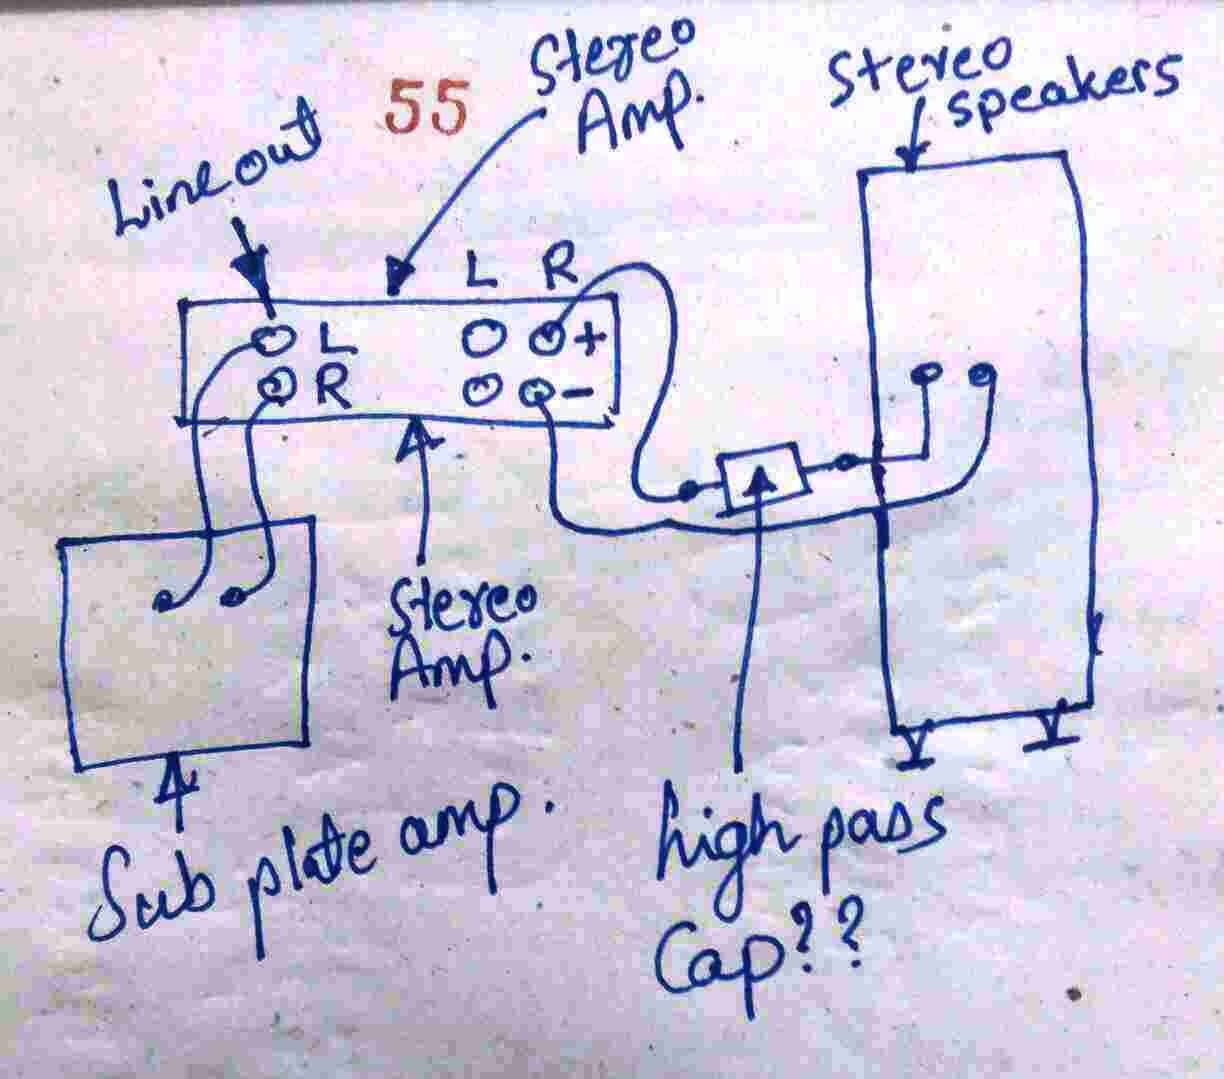 55
Stereo
Amp.
Stereo
speakers
Line out
L R
L
+
R
-
Stereo
Amp.
Sub plate amp.
high pass
Cap??